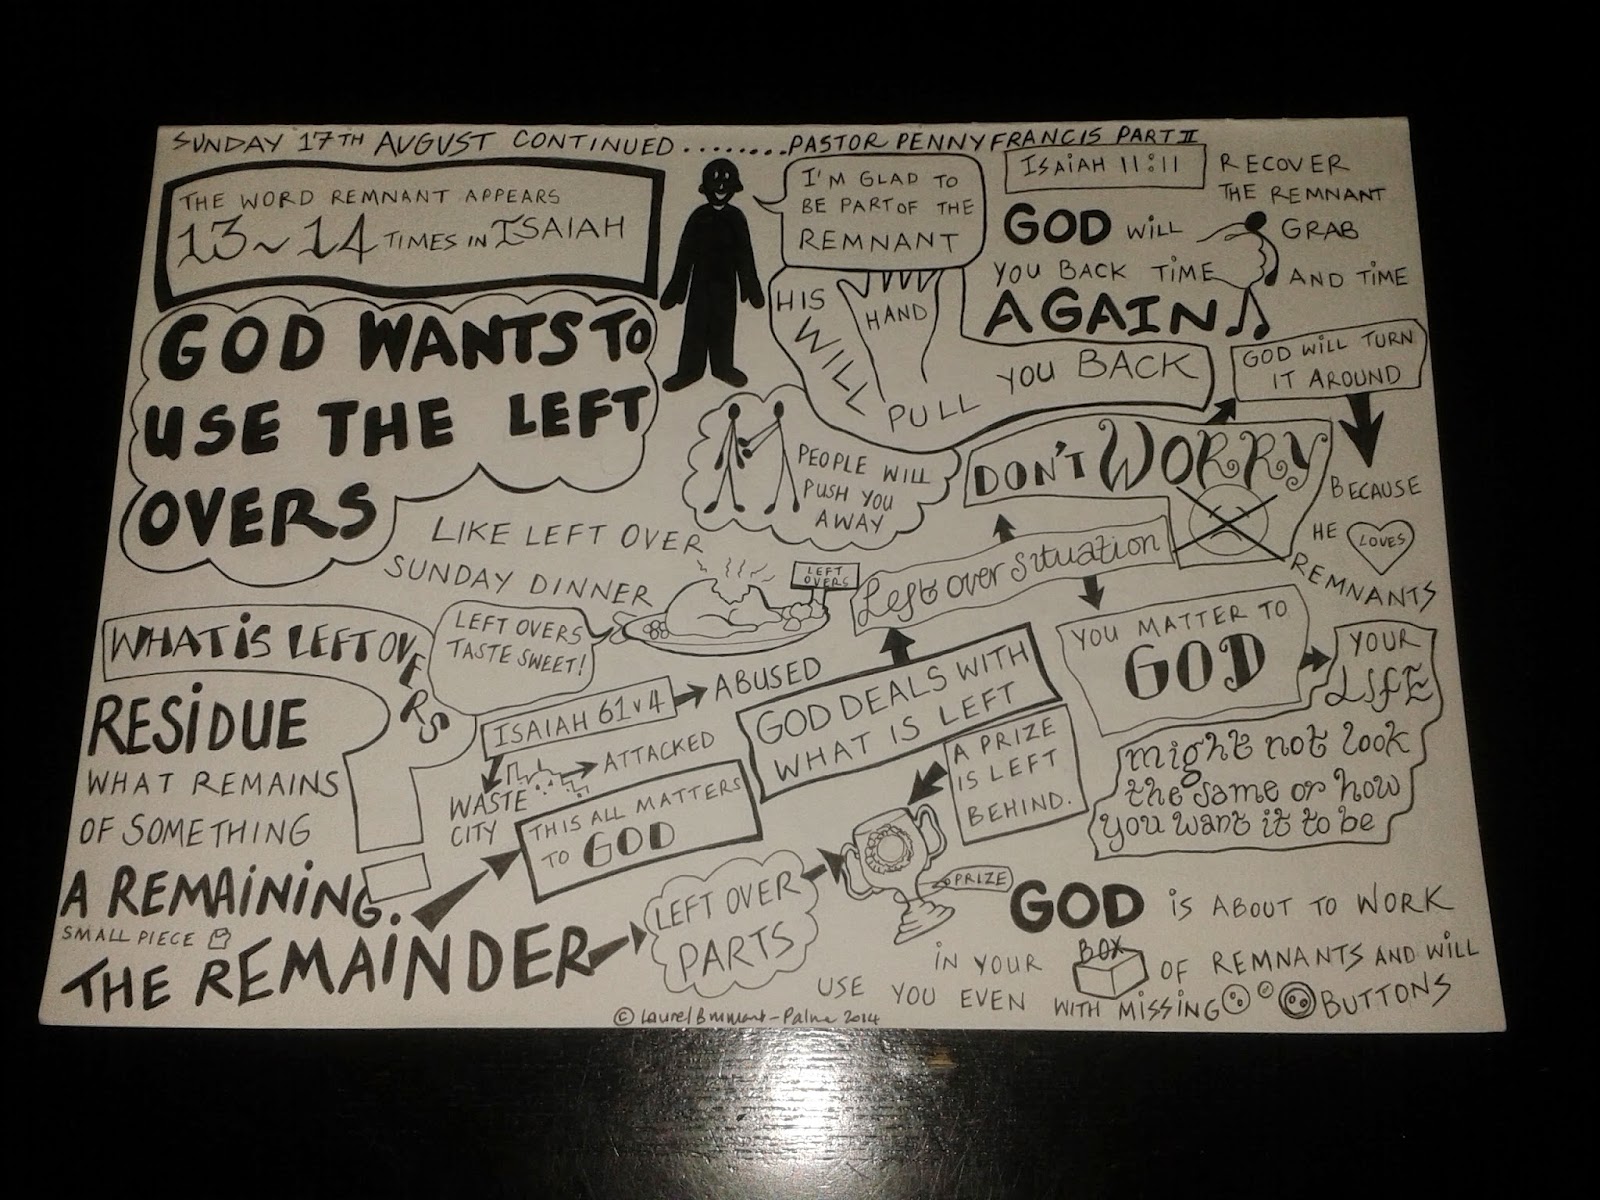 SUNDAY 17TH AUGUST CONTINUED........PASTOR PENNY FRANCIS PART II
THE WORD REMNANT APPEARS
13~14 TIMES IN ISAIAH
I'M GLAD TO
BE PART OF THE
REMNANT
ISAIAH 11:11
RECOVER
THE REMNANT
GOD WILL GRAB
YOU BACK TIME AND TIME
AGAIN
HIS
HAND
WILL
PULL YOU BACK
GOD WILL TURN
IT AROUND
GOD WANTS TO
USE THE LEFT
OVERS
PEOPLE WILL
PUSH YOU
AWAY
DON'T WORRY
BECAUSE
HE LOVES
REMNANTS
LIKE LEFT OVER
SUNDAY DINNER
LEFT
OVERS
LEFT OVERS
TASTE SWEET!
Left over situation
WHAT IS LEFT OVERS
RESIDUE
WHAT REMAINS
OF SOMETHING
A REMAINING.
SMALL PIECE
THE REMAINDER
ISAIAH 61 v 4
ABUSED
ATTACKED
WASTE
CITY
THIS ALL MATTERS
TO GOD
GOD DEALS WITH
WHAT IS LEFT
A PRIZE
IS LEFT
BEHIND.
YOU MATTER TO
GOD
YOUR
LIFE
might not look
the same or how
you want it to be
LEFT OVER
PARTS
PRIZE
GOD IS ABOUT TO WORK
IN YOUR BOX OF REMNANTS AND WILL
USE YOU EVEN WITH MISSING BUTTONS
© Laurel 2014